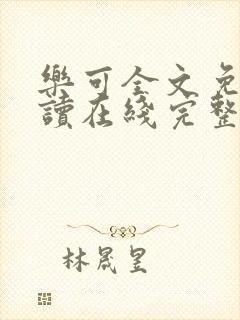 樂可全文免
讀在綫完整
林晟昱